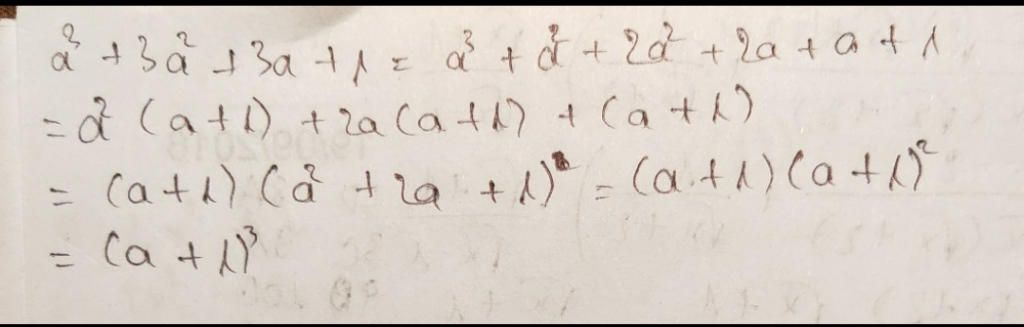 a³ + 3a² + 3a + 1 = a³ + a² + 2a² + 2a + a + 1
= a² (a + 1) + 2a (a + 1) + (a + 1)
= (a + 1) (a² + 2a + 1) = (a + 1) (a + 1)²
= (a + 1)³